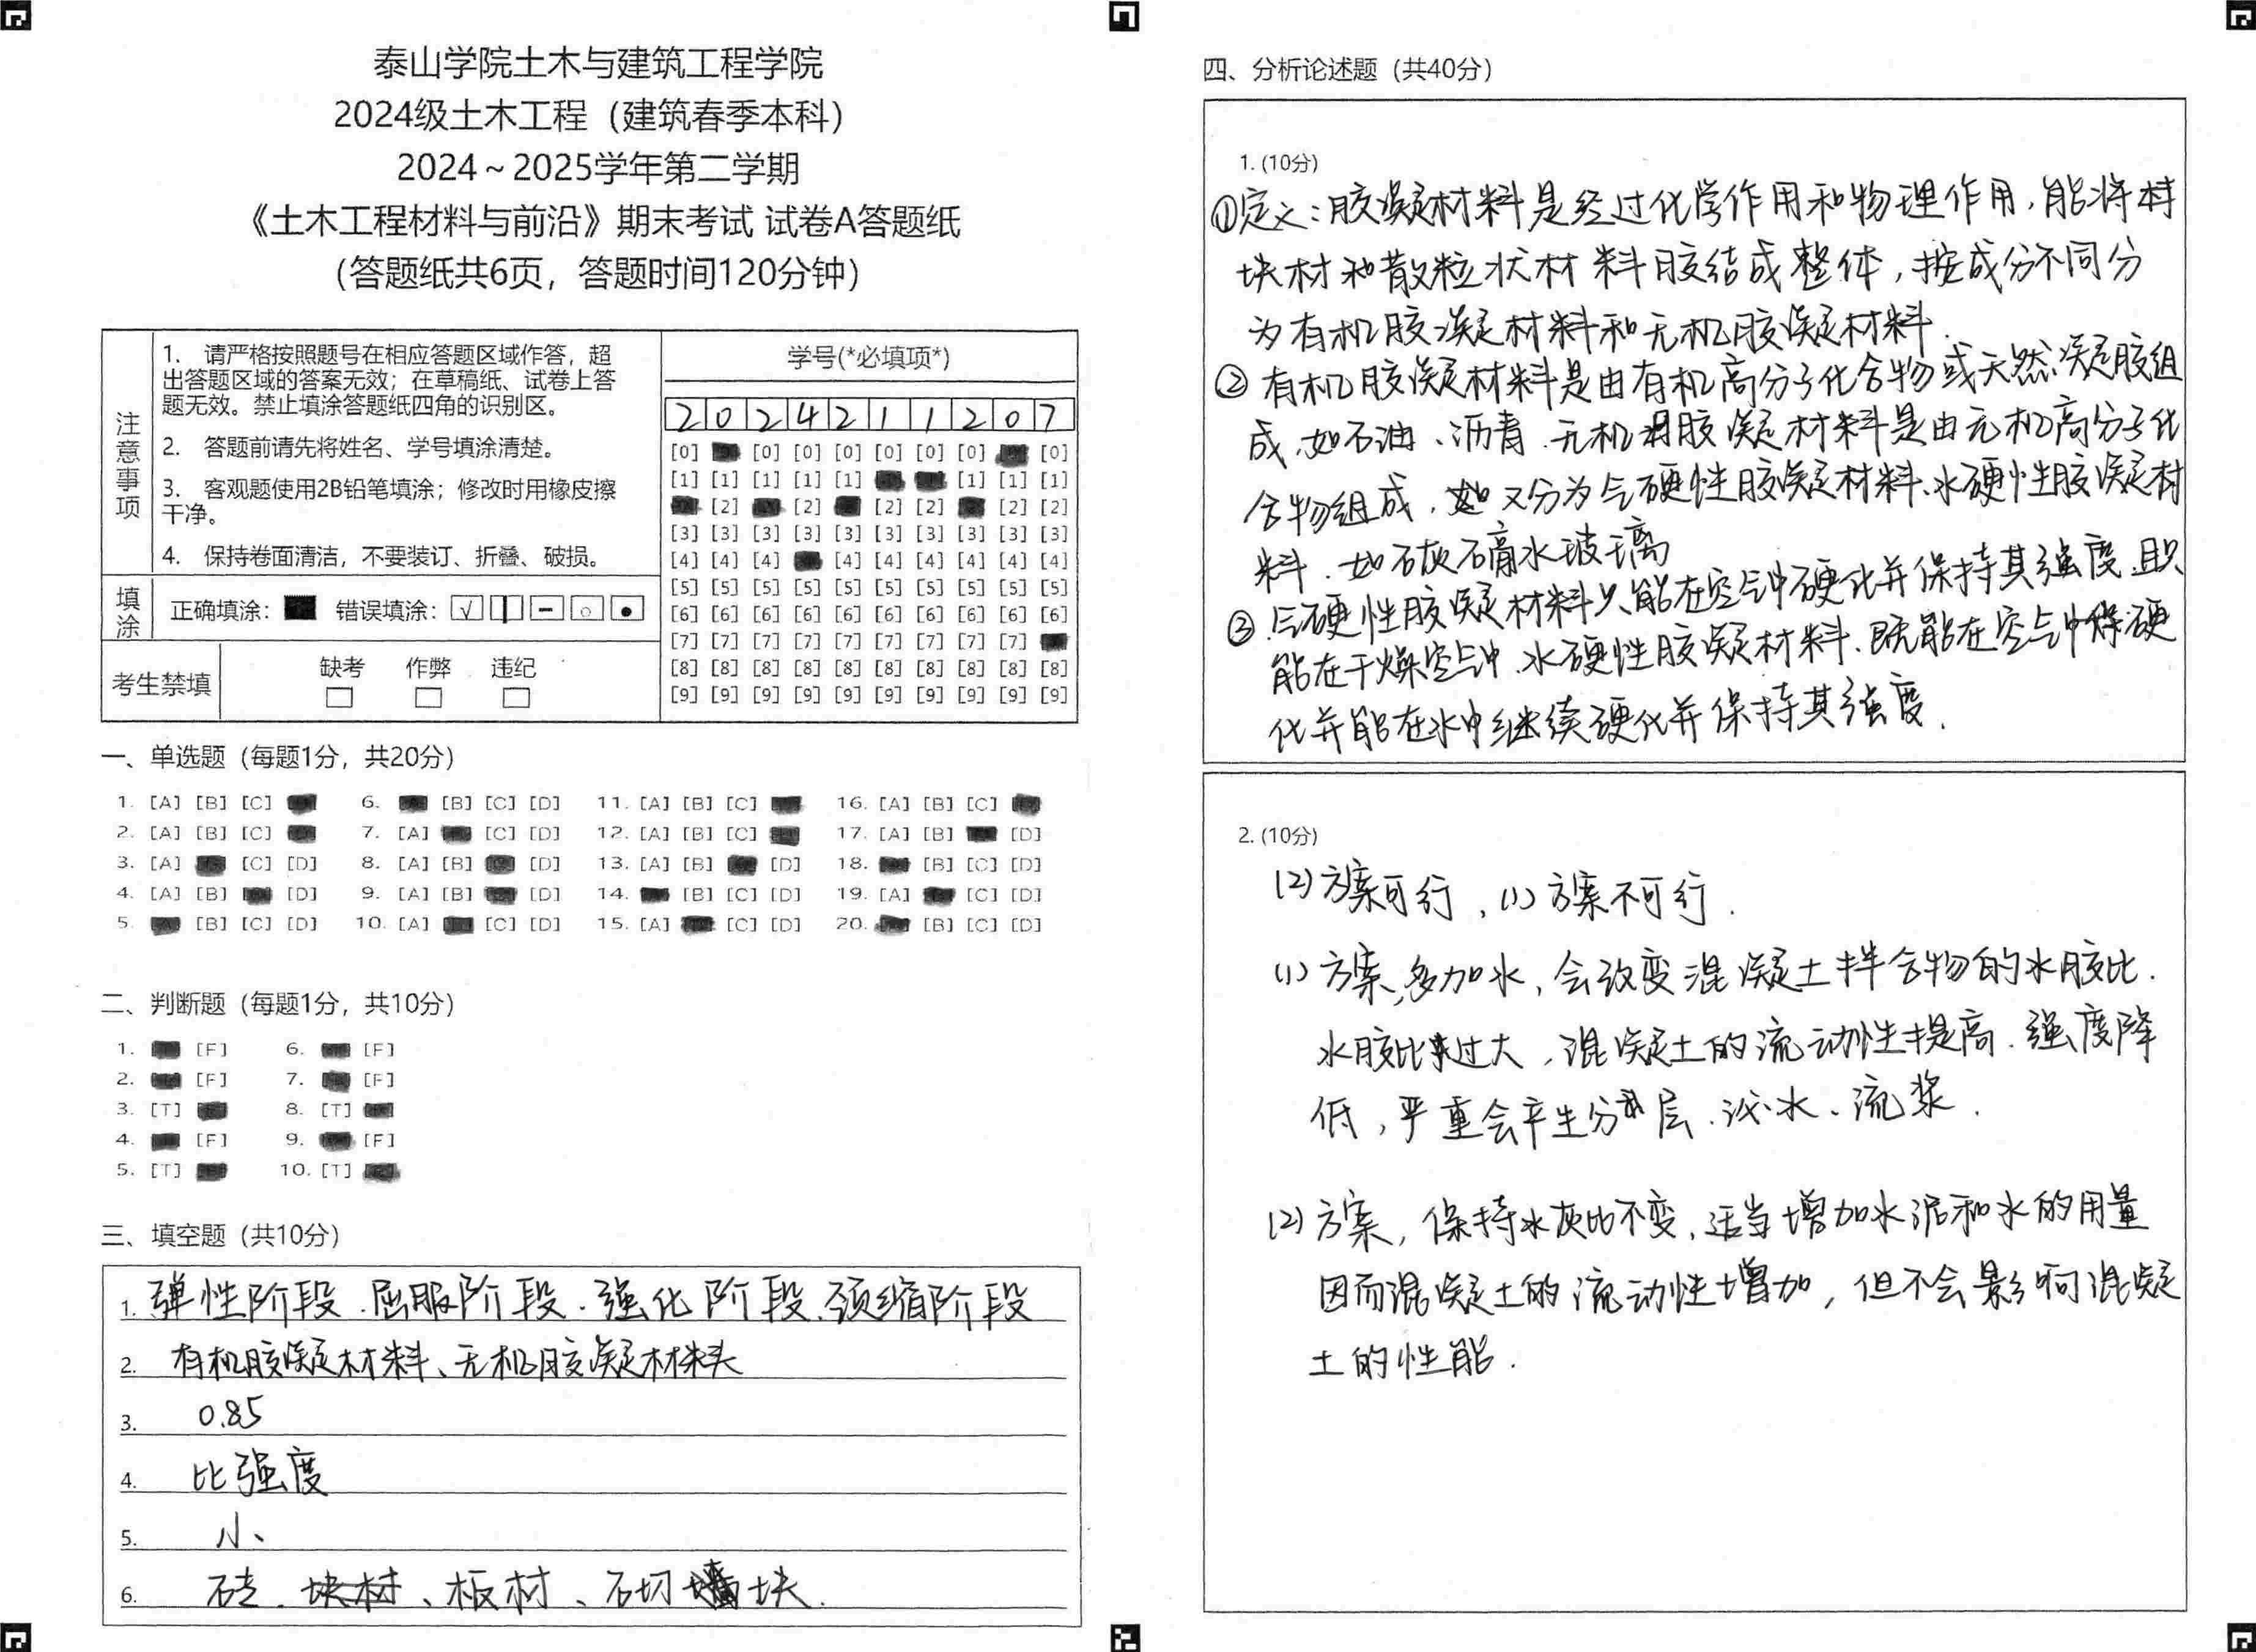 泰山学院土木与建筑工程学院
2024级土木工程（建筑春季本科）
2024～2025学年第二学期
《土木工程材料与前沿》期末考试 试卷A答题纸
（答题纸共6页，答题时间120分钟）
注意事项
1. 请严格按照题号在相应答题区域作答，超
出答题区域的答案无效；在草稿纸、试卷上答
题无效。禁止填涂答题纸四角的识别区。
2. 答题前请先将姓名、学号填涂清楚。
3. 客观题使用2B铅笔填涂；修改时用橡皮擦
干净。
4. 保持卷面清洁，不要装订、折叠、破损。
填涂 正确填涂： 错误填涂：
考生禁填 缺考 作弊 违纪
学号(*必填项*)
2 0 2 4 2 1 1 2 0 7
[0] [0] [0] [0] [0] [0] [0] [0]
[1] [1] [1] [1] [1] [1] [1] [1]
[2] [2] [2] [2] [2] [2]
[3] [3] [3] [3] [3] [3] [3] [3] [3] [3]
[4] [4] [4] [4] [4] [4] [4] [4] [4]
[5] [5] [5] [5] [5] [5] [5] [5] [5] [5]
[6] [6] [6] [6] [6] [6] [6] [6] [6] [6]
[7] [7] [7] [7] [7] [7] [7] [7] [7]
[8] [8] [8] [8] [8] [8] [8] [8] [8] [8]
[9] [9] [9] [9] [9] [9] [9] [9] [9] [9]
一、单选题（每题1分，共20分）
1. [A] [B] [C] 6. [B] [C] [D] 11. [A] [B] [C] 16. [A] [B] [C]
2. [A] [B] [C] 7. [A] [C] [D] 12. [A] [B] [C] 17. [A] [B] [D]
3. [A] [C] [D] 8. [A] [B] [D] 13. [A] [B] [D] 18. [B] [C] [D]
4. [A] [B] [D] 9. [A] [B] [D] 14. [B] [C] [D] 19. [A] [C] [D]
5. [B] [C] [D] 10. [A] [C] [D] 15. [A] [C] [D] 20. [B] [C] [D]
二、判断题（每题1分，共10分）
1. [F] 6. [F]
2. [F] 7. [F]
3. [T] 8. [T]
4. [F] 9. [F]
5. [T] 10. [T]
三、填空题（共10分）
1. 弹性阶段、屈服阶段、强化阶段、颈缩阶段
2. 有机胶凝材料、无机胶凝材料
3. 0.85
4. 比强度
5. 小、
6. 砖、块材、板材、石切块.
四、分析论述题（共40分）
1. (10分)
①定义：胶凝材料是经过化学作用和物理作用，能将材
块材和散粒状材料胶结成整体，按成分不同分
为有机胶凝材料和无机胶凝材料.
② 有机胶凝材料是由有机高分子化合物或天然凝胶组
成，如石油、沥青.无机胶凝材料是由无机高分子化
合物组成，又分为气硬性胶凝材料、水硬性胶凝材
料.如石灰石膏水玻璃
③.气硬性胶凝材料只能在空气中硬化并保持其强度,且只
能在干燥空气中.水硬性胶凝材料.既能在空气中硬
化并能在水中继续硬化并保持其强度.
2. (10分)
(2)方案可行，(1)方案不可行.
(1)方案,多加水，会改变混凝土拌合物的水胶比.
水胶比过大，混凝土的流动性提高.强度降
低，严重会产生分层.泌水、流浆.
(2)方案，保持水灰比不变,适当增加水泥和水的用量
因而混凝土的流动性增加，但不会影响混凝
土的性能.